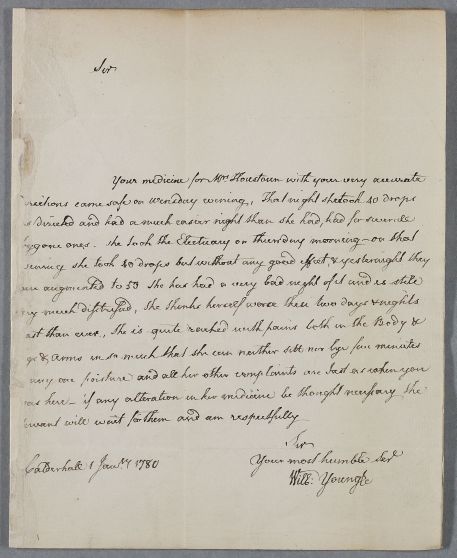 Sir
Your medicine for Mrs Houstoun with your very accurate
directions came safe on wensday evening, That night she took 40 drops
as directed and had a much easier night than she had had for severale
bygone ones. She took the Electuary on thursday morning on that
evening she took 40 drops but without any good effect & yesternight they
augmented to 55 She has had a very bad night of it and is stile
very much distressed, She thinks herself worse these two days & nights
past than ever, She is quite racked with pains both in the Body &
Legs & Arms in so much that she can neither sitt nor lye five minutes
in any one posture and all her other complaints are Just as when you
was here – if any alteration in her medicine be thought necessary the
servant will wait for them and am respectfully
Sir
Your most humble Ser
Calderhall 1 Janry 1780
Will: Young